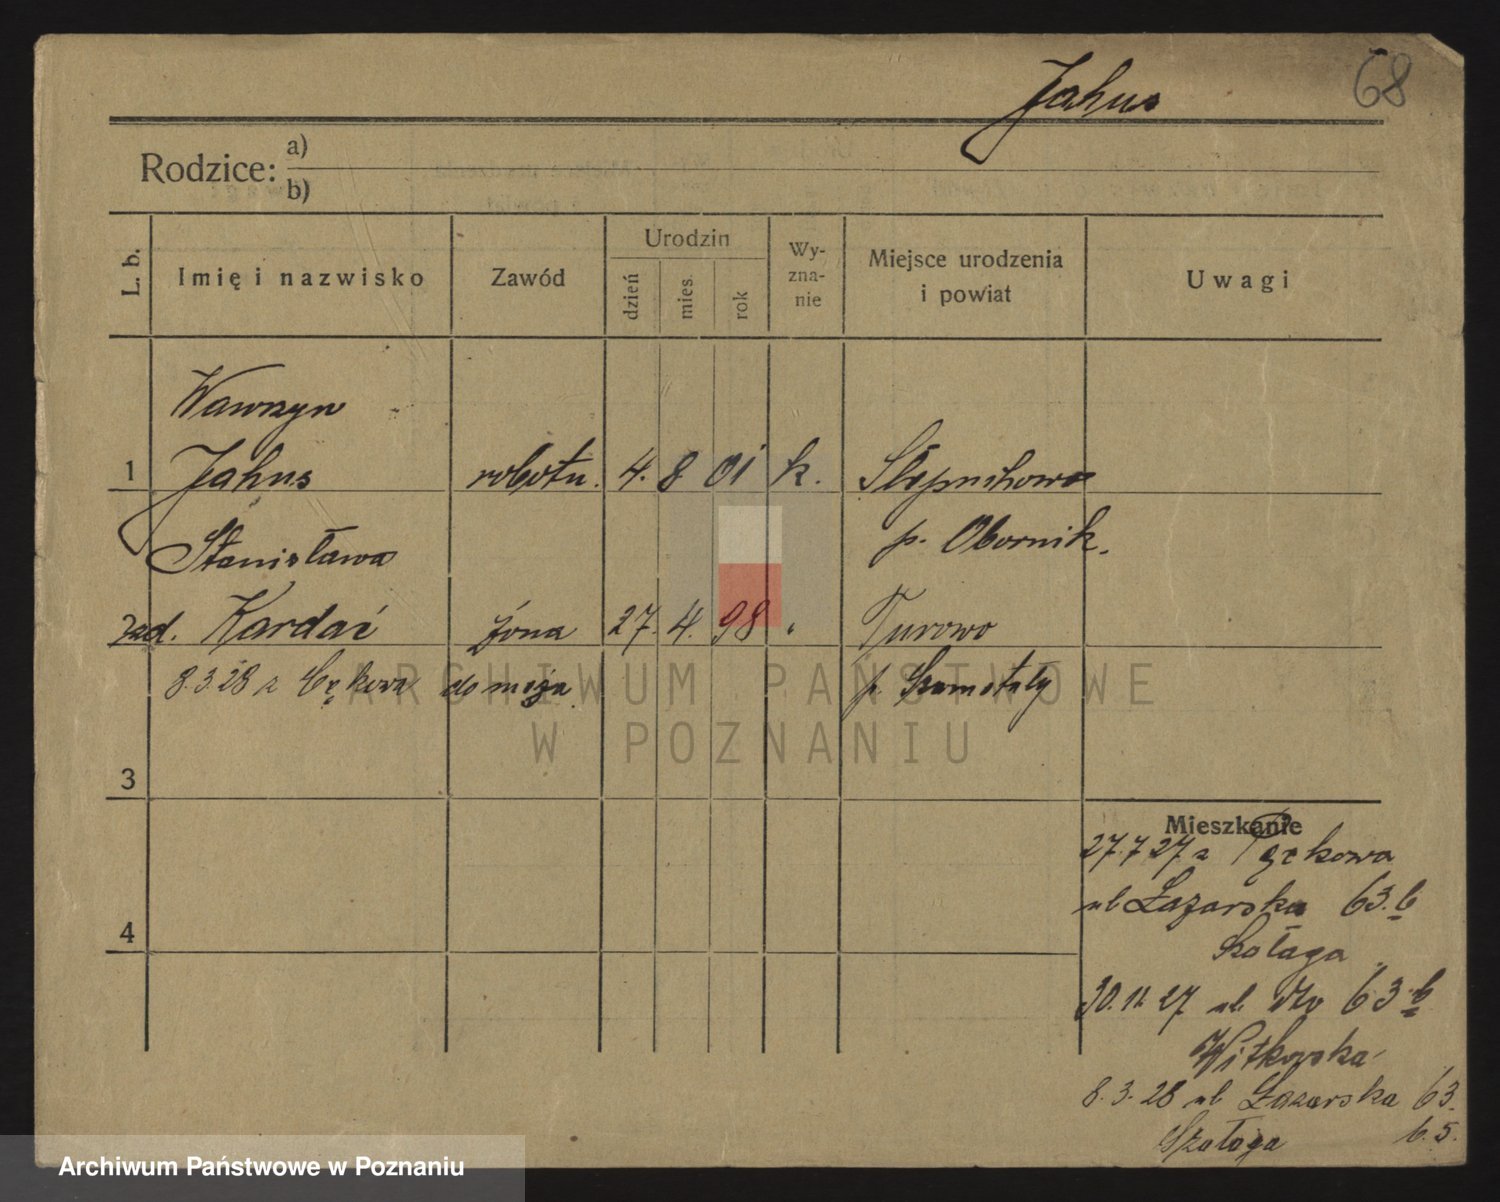 Jahns 68
Rodzice: a)
b)
L. b. Imię i nazwisko Zawód Urodzin dzień mies. rok Wy-zna-nie Miejsce urodzenia i powiat Uwagi
Wawrzyn
1 Jahns robotn. 4. 8 01 k. Słopuchowo
p. Obornik.
Stanisława
2 zd. Kardać żona 27. 4. 98 " Turowo
8.3.28 z do męża p. Szamotuły
3
4
Mieszkanie
27.7.27 z
ul Łazarska 63.b
Szołaga
30.11.27 ul. dto 63 b
Witkowska
8.3.28 ul Łazarska 63.
Szołaga b.5.
ARCHIWUM PAŃSTWOWE
W POZNANIU
Archiwum Państwowe w Poznaniu